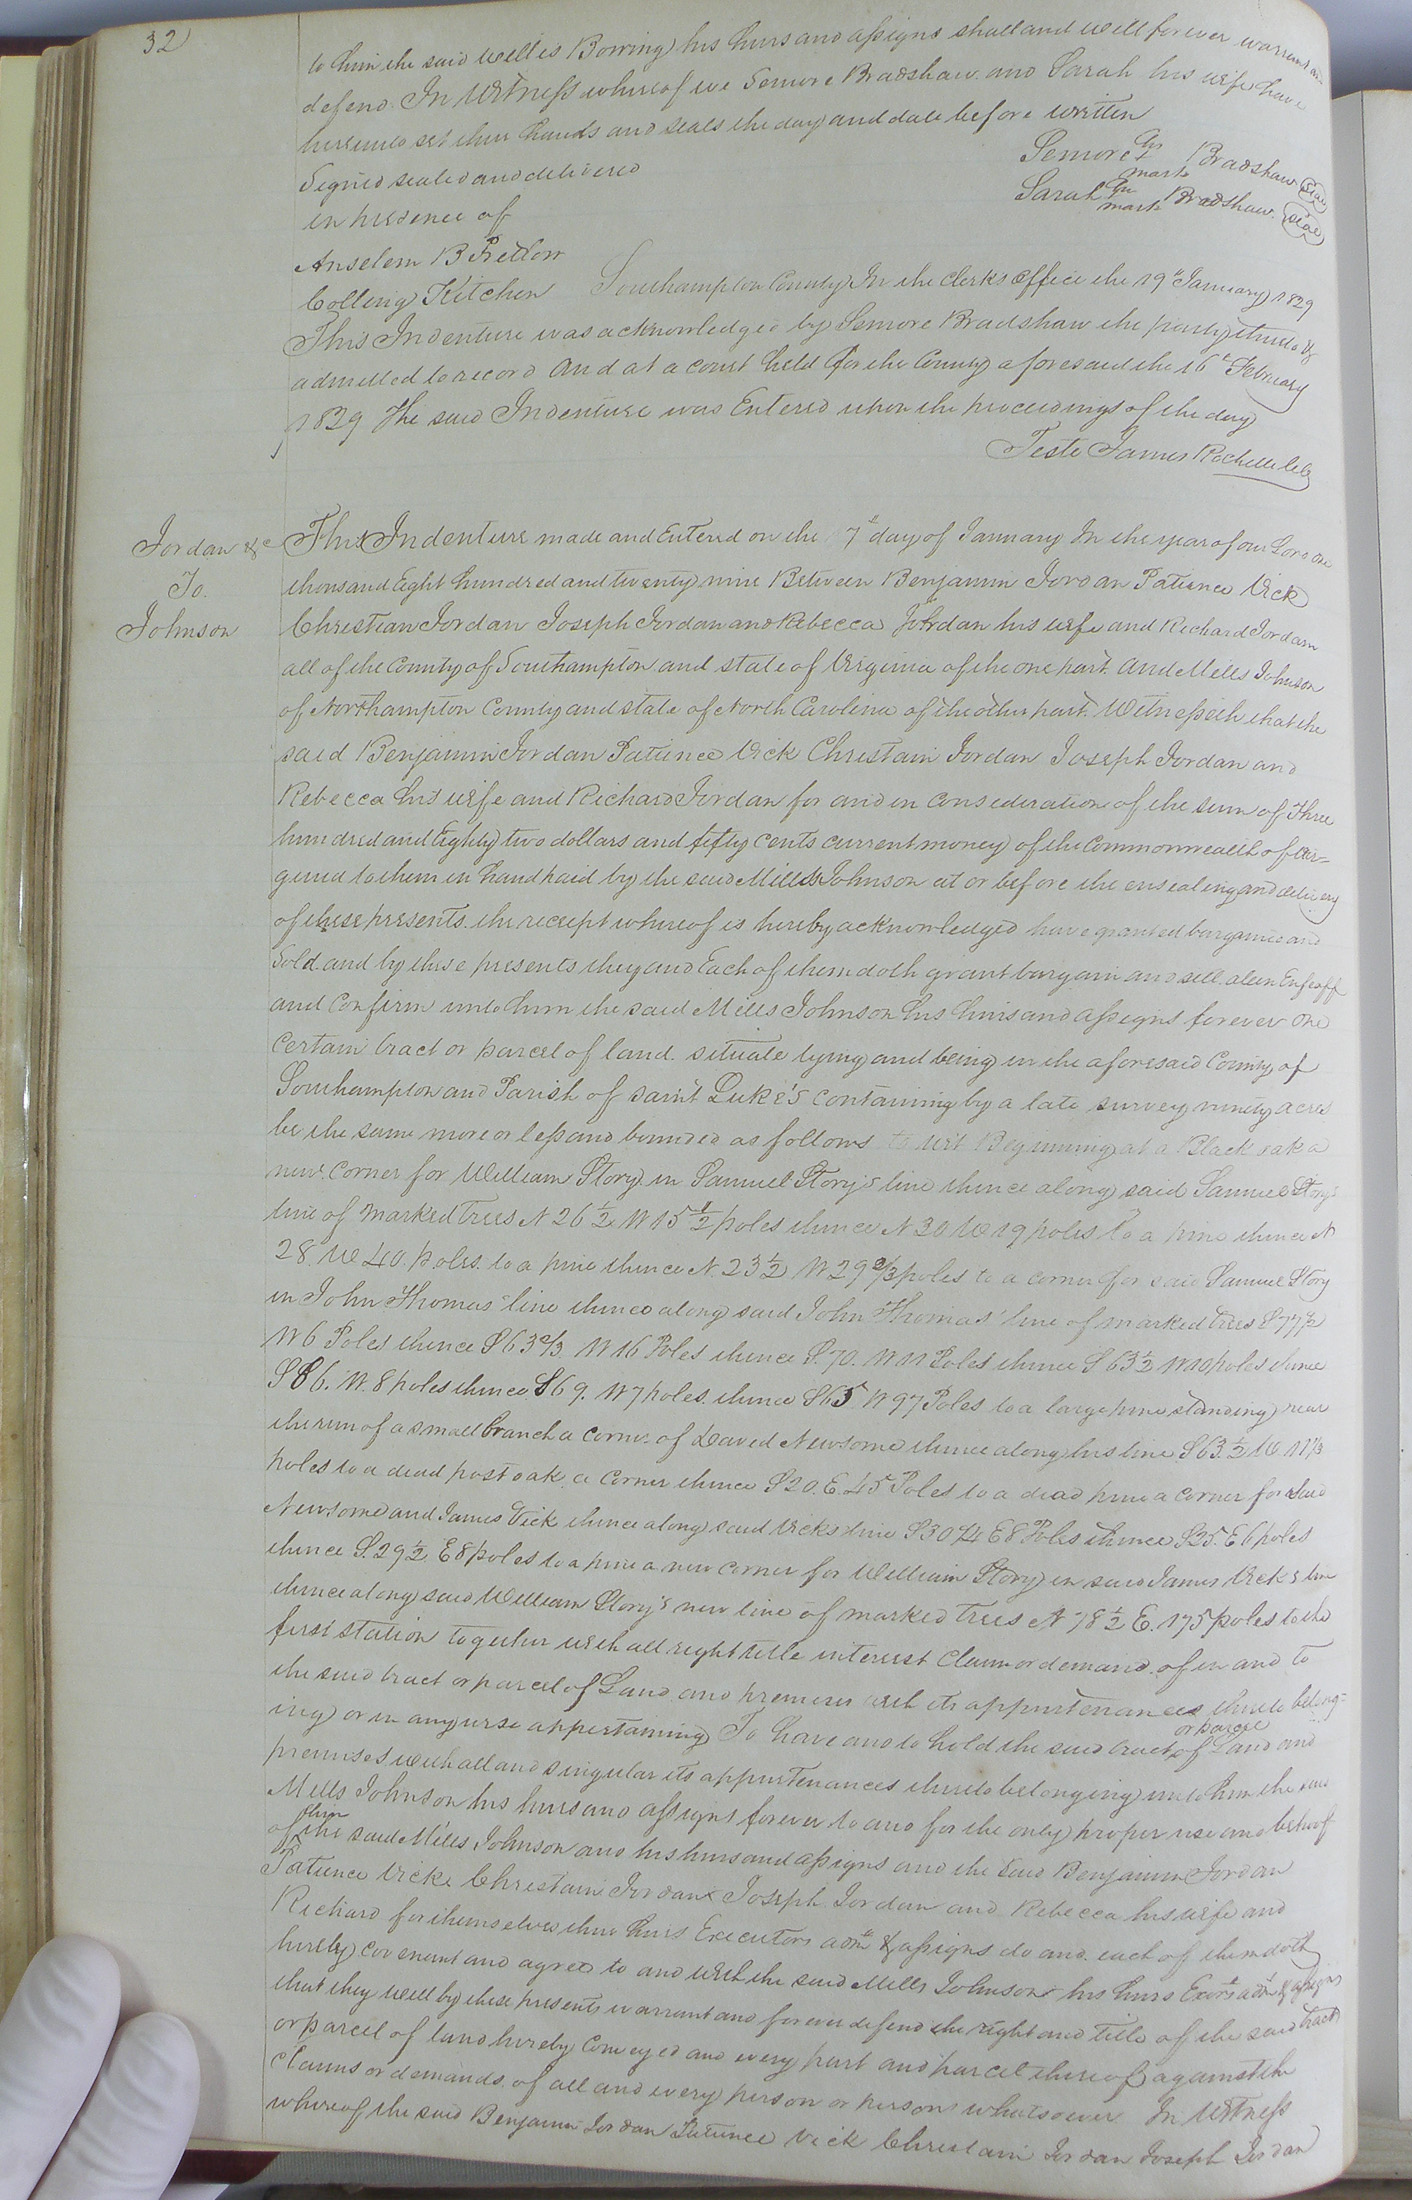 32
to him the said Willis Bowing his heirs and assigns shall and will forever warrant and
defend In Witness whereof we Semore Bradshaw and Sarah his wife have
hereunto set their hands and seals the day and date before written
Semore his + mark Bradshaw seal
Sarah her mark Bradshaw seal
Signed sealed and delivered
in presence of
Anselem B Pretlow
Colling Kitchen Southampton County In the Clerks Office the 19th January 1829
This Indenture was acknowledged by Semore Bradshaw the party thereto &
admitted to record And at a court held for the County aforesaid the 16th February
1829 The said Indenture was Entered upon the proceedings of the day
Teste James Rochelle Clk
Jordan &c
To
Johnson
This Indenture made and Entered on the 7th day of January In the year of our Lord one
thousand Eight hundred and twenty nine Between Benjamin Jordan Patience Vick
Christian Jordan Joseph Jordan and Rebecca Jordan his wife and Richard Jordan
all of the County of Southampton and state of Virginia of the one part. And Mills Johnson
of Northampton County and state of North Carolina of the other part. Witnesseth that the
said Benjamin Jordan Patience Vick Christain Jordan Joseph Jordan and
Rebecca his wife and Richard Jordan for and in consideration of the sum of Three
hundred and Eighty two dollars and fifty cents current money of the Commonwealth of Vir=
ginia to them in hand paid by the said Mills Johnson at or before the ensealing and delivery
of these presents the receipt whereof is hereby acknowledged have granted bargained and
Sold and by these presents they and Each of them doth grant bargain and sell alien Enfeoff
and Confirm unto him the said Mills Johnson his heirs and assigns forever one
Certain tract or parcel of land situate lying and being in the aforesaid County of
Southampton and Parish of saint Luke's containing by a late survey ninety acres
be the same more or less and bounded as follows to wit Beginning at a Black oak a
new corner for William Story in Samuel Story's line thence along said Samuel Story's
line of marked trees N 26 ½ W 15 ½ poles thence N 30 W 19 poles to a pine thence N
28 W 40 poles to a pine thence N. 23 ½ W 29 ⅔ poles to a corner for said Samuel Story
in John Thomas' line thence along said John Thomas' line of marked trees S 77 ½
W 6 Poles thence S 63 ⅔ W 16 Poles thence S. 70. W 11 Poles thence S 63 ½ W 10 poles thence
S 86. W. 8 poles thence S 69. W 7 poles thence S 65 W 97 Poles to a large pine standing near
the run of a small branch a corner of David Newsome thence along his line S 63 ½ W 11 ⅓
poles to a dead post oak a corner thence S 20. E. 45 Poles to a dead pine a corner for said
Newsome and James Vick thence along said Vicks line S 30 ¼ E 8 Poles thence S 25. E 6 poles
thence S. 29 ½ E 8 poles to a pine a new corner for William Story in said James Vick's line
thence along said William Story's new line of marked trees N 78 ½ E. 175 poles to the
first station together with all right title interest Claim or demand of in and to
the said tract or parcel of Land and premises with its appurtenances thereto belong=
ing or in anywise appertaining To have and to hold the said tract or parcel of Land and
premises with all and singular its appurtenances thereto belonging unto him the said
Mills Johnson his heirs and assigns forever to and for the only proper use and behoof
of him the said Mills Johnson and his heirs and assigns and the said Benjamin Jordan
Patience Vick Christain Jordan Joseph Jordan and Rebecca his wife and
Richard for themselves their heirs Executors admrs & assigns do and each of them doth
hereby covenant and agree to and with the said Mills Johnson his heirs Exors admrs & assigns
that they will by these presents warrant and forever defend the right and title of the said tract
or parcel of land hereby Conveyed and every part and parcel thereof against the
claims or demands of all and every person or persons whatsoever In Witness
whereof the said Benjamin Jordan Patience Vick Christain Jordan Joseph Jordan